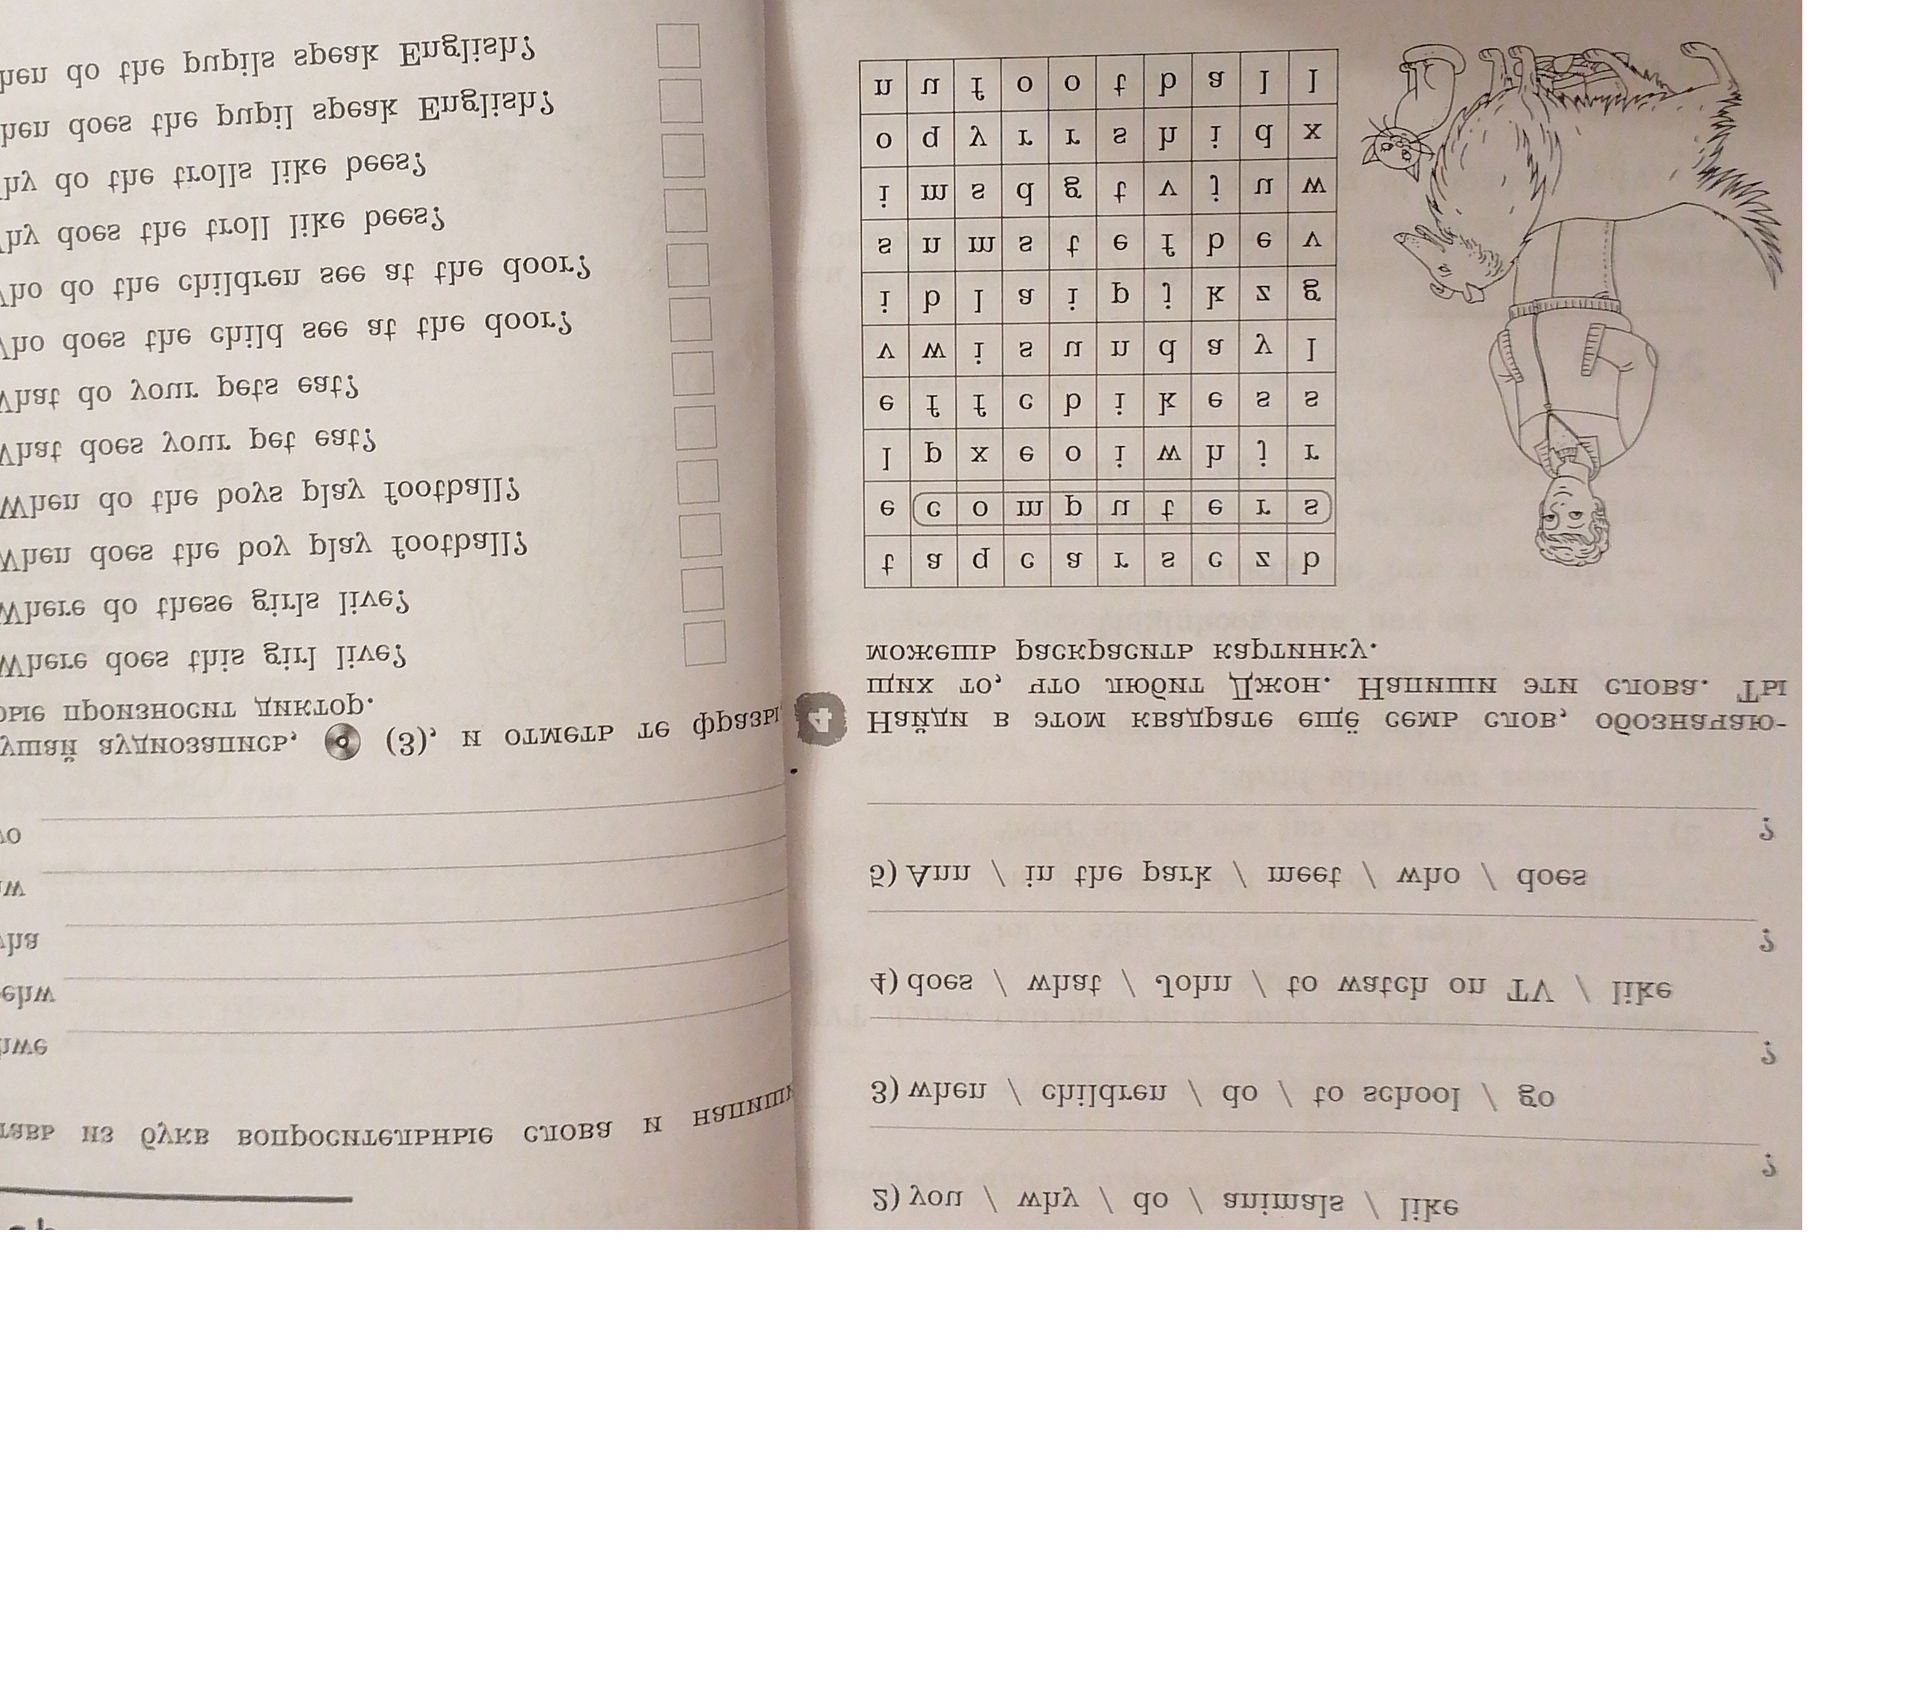 тавь из букв вопросительные слова и напиши
hwe
ehw
ушай аудиозапись, (3), и отметь те фразы,
рые произносит диктор.
Where does this girl live?
Where do these girls live?
When does the boy play football?
When do the boys play football?
What does your pet eat?
What do your pets eat?
Who does the child see at the door?
Who do the children see at the door?
Why does the troll like bees?
Why do the trolls like bees?
hen does the pupil speak English?
hen do the pupils speak English?
2) you / why / do / animals / like
?
3) when / children / do / to school / go
?
4) does / what / John / to watch on TV / like
?
5) Ann / in the park / meet / who / does
?
4 Найди в этом квадрате ещё семь слов, обозначаю-
щих то, что любит Джон. Напиши эти слова. Ты
можешь раскрасить картинку.
t a q c a r s c z b
e c o m p u t e r s
l p x e o i w h j r
e f f c b i k e s s
v w i s u n d a y l
i b l a i p j k z g
s n m s t e f b e v
i m s d g t v j u w
o q y r r s h i d x
n u f o o t b a l l